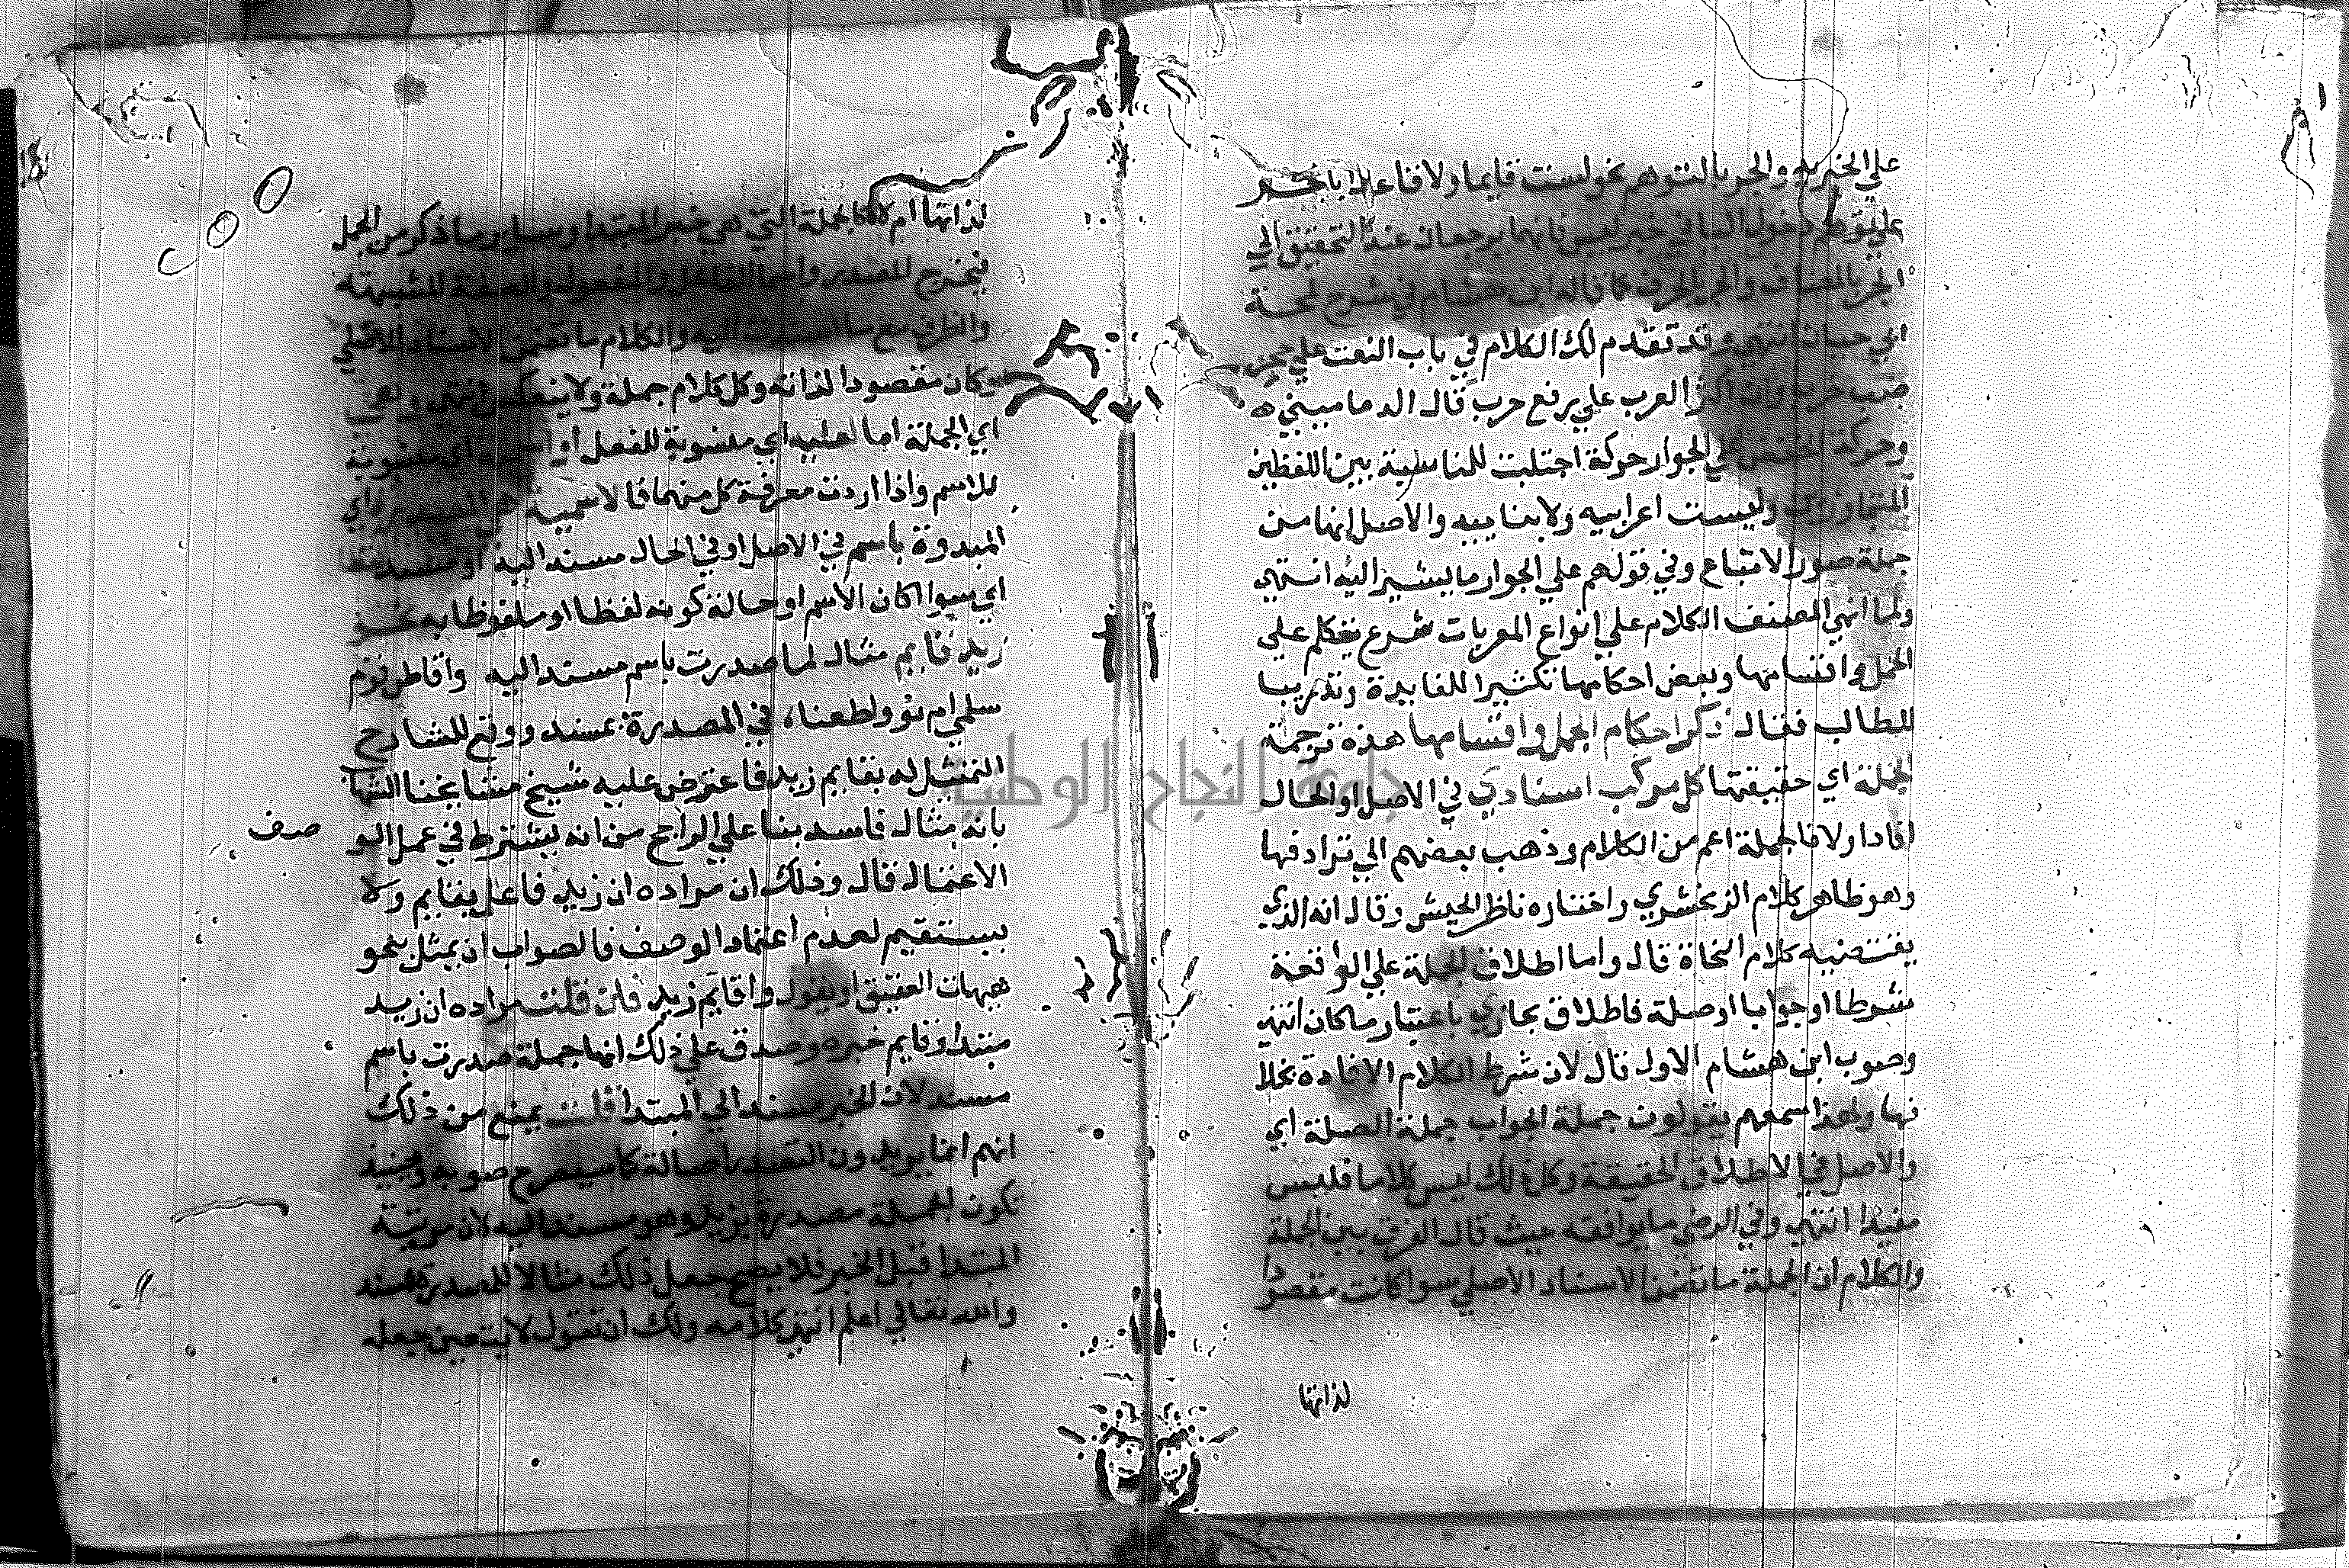 علي الخبريه والجر بالتوهم نحو لست قايما ولا قاعد بالجر
علي توهم دخول البا في خبر ليس فانهما يرجعان عند التحقيق الي
الجر بالمضاف والجر بالحرف كما قاله ابن هشام في شرح لمحة
ابي حيان انتهي وقد تقدم لك الكلام في باب النعت علي جحر
ضب خرب وان اكثر العرب علي رفع خرب قال الدماميني
وحركة الخفض علي الجوار حركة اجتلبت للمناسبة بين اللفظين
المتجاورين وليست اعرابيه ولا بنابيه والاصل انها من
جملة صور الاتباع وفي قولهم علي الجوار ما يشير اليه انتهي
ولما انهي المصنف الكلام علي انواع المعربات شرع يتكلم علي
الجمل واقسامها وبعض احكامها تكثيرا للفايدة وتدريبا
للطالب فقال ذكر احكام الجمل واقسامها هذه ترجمة
الجملة اي حقيقتها كل مركب اسنادي في الاصل او الحال
افاد اولا فالجملة اعم من الكلام وذهب بعضهم الي ترادفها
وهو ظاهر كلام الزمخشري واختاره ناظر الجيش وقال انه الذي
يقتضيه كلام النحاة قال واما اطلاق الجملة علي الواقعة
شرطا او جوابا او صلة فاطلاق مجازي باعتبار ما كان انتهي
وصوب ابن هشام الاول قال لان شرط الكلام الافادة بخلا
فها ولهذا اسمعهم يقولون جملة الجواب جملة الصلة اي
والاصل في الاطلاق الحقيقة وكل ذلك ليس كلاما فليس
مفيدا انتهي وفي الرضي ما يوافقه حيث قال الفرق بين الجملة
والكلام ان الجملة ما تضمن الاسناد الاصلي سوا كانت مقصودا
لذاتها
لذاتها ام لا كالجملة التي هي خبر المبتدا وساير ما ذكر من الجمل
فيخرج المصدر واسما الفاعل والمفعول والصفة المشبهة
والظرف مع ما اسندت اليه والكلام ما تضمن الاسناد الاصلي
وكان مقصودا لذاته وكل كلام جملة ولا ينعكس انتهي وهي
اي الجملة اما فعليه اي منسوبة للفعل او اسمية اي منسوبة
للاسم واذا اردت معرفة كل منهما فالاسمية هي المصدرة اي
المبدوة باسم في الاصل او في الحال مسند اليه او مسند
اي سوا كان الاسم او حالة كونه لفظا او ملفوظا به نحو
زيد قايم مثال لما صدرت باسم مسند اليه واقاطن قوم
سلمي ام نووا ظعنا في المصدرة بمسند ووقع للشارح
التمثيل له بقايم زيد فاعترض عليه شيخ مشايخنا الشها
بانه مثال فاسد بنا علي الراجح من انه يشترط في عمل الو
صف
الاعتماد قال وذلك ان مراده ان زيد فاعل بقايم ولا
يستقيم لعدم اعتماد الوصف فالصواب ان يمثل بنحو
هيهات العقيق او يقول واقايم زيد فان قلت مراده ان زيد
مبتدا وقايم خبره وصدق علي ذلك انها جملة صدرت باسم
مسند لان الخبر مسند الي المبتدا قلت يمنع من ذلك
انهم انما يريدون التصدير اصالة كما سيصرح صوبه وحينيذ
تكون الجملة مصدرة بزيد وهو مسند اليه لان مرتبة
المبتدا قبل الخبر فلا يصح جعل ذلك مثالا للمصدرة بمسند
والله تعالي اعلم انتهي كلامه ولك ان تقول لا يتعين جعله
جامعة النجاح الوطنية